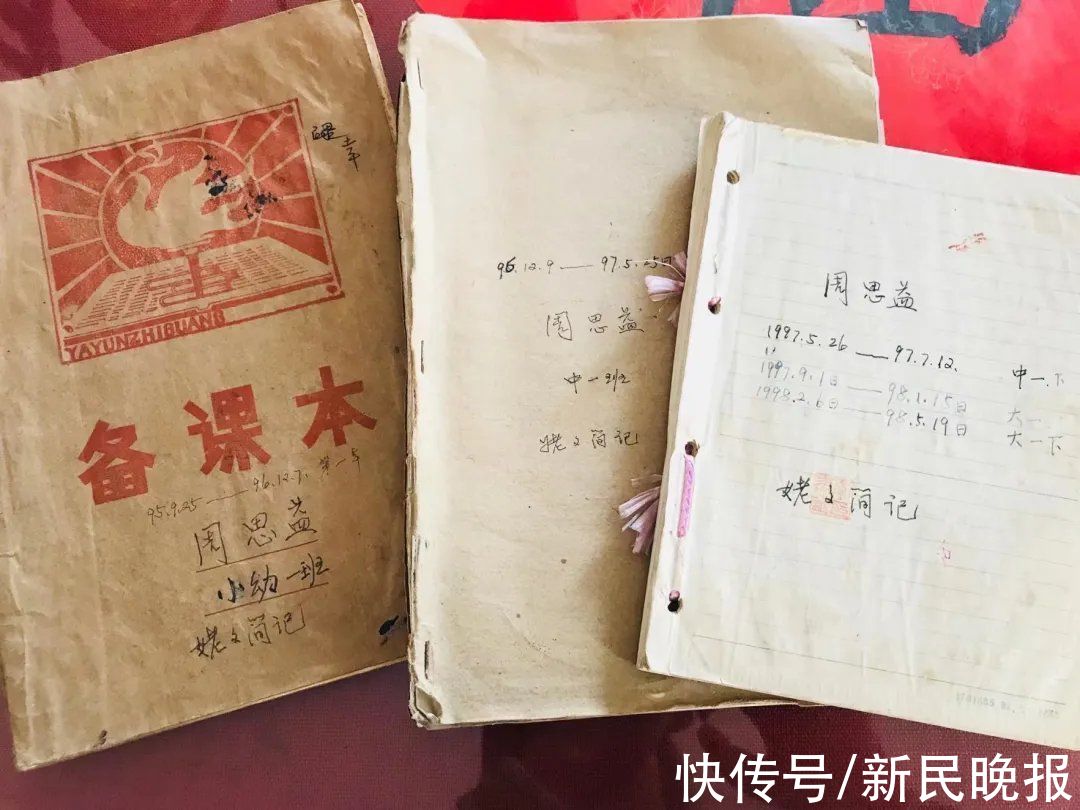 YAYUNZHIGUANG
备课本
95.9.25——96.12.7.
周思益
小幼一班
姥文简记
96.12.9——97.5.25日
周思益
中一班
姥文简记
周思益
1997.5.26——97.7.12. 中一.下
1997.9.1日——98.1.15日 大一
1998.2.6日——98.5.19日 大一下
姥文简记
快传号/新民晚报